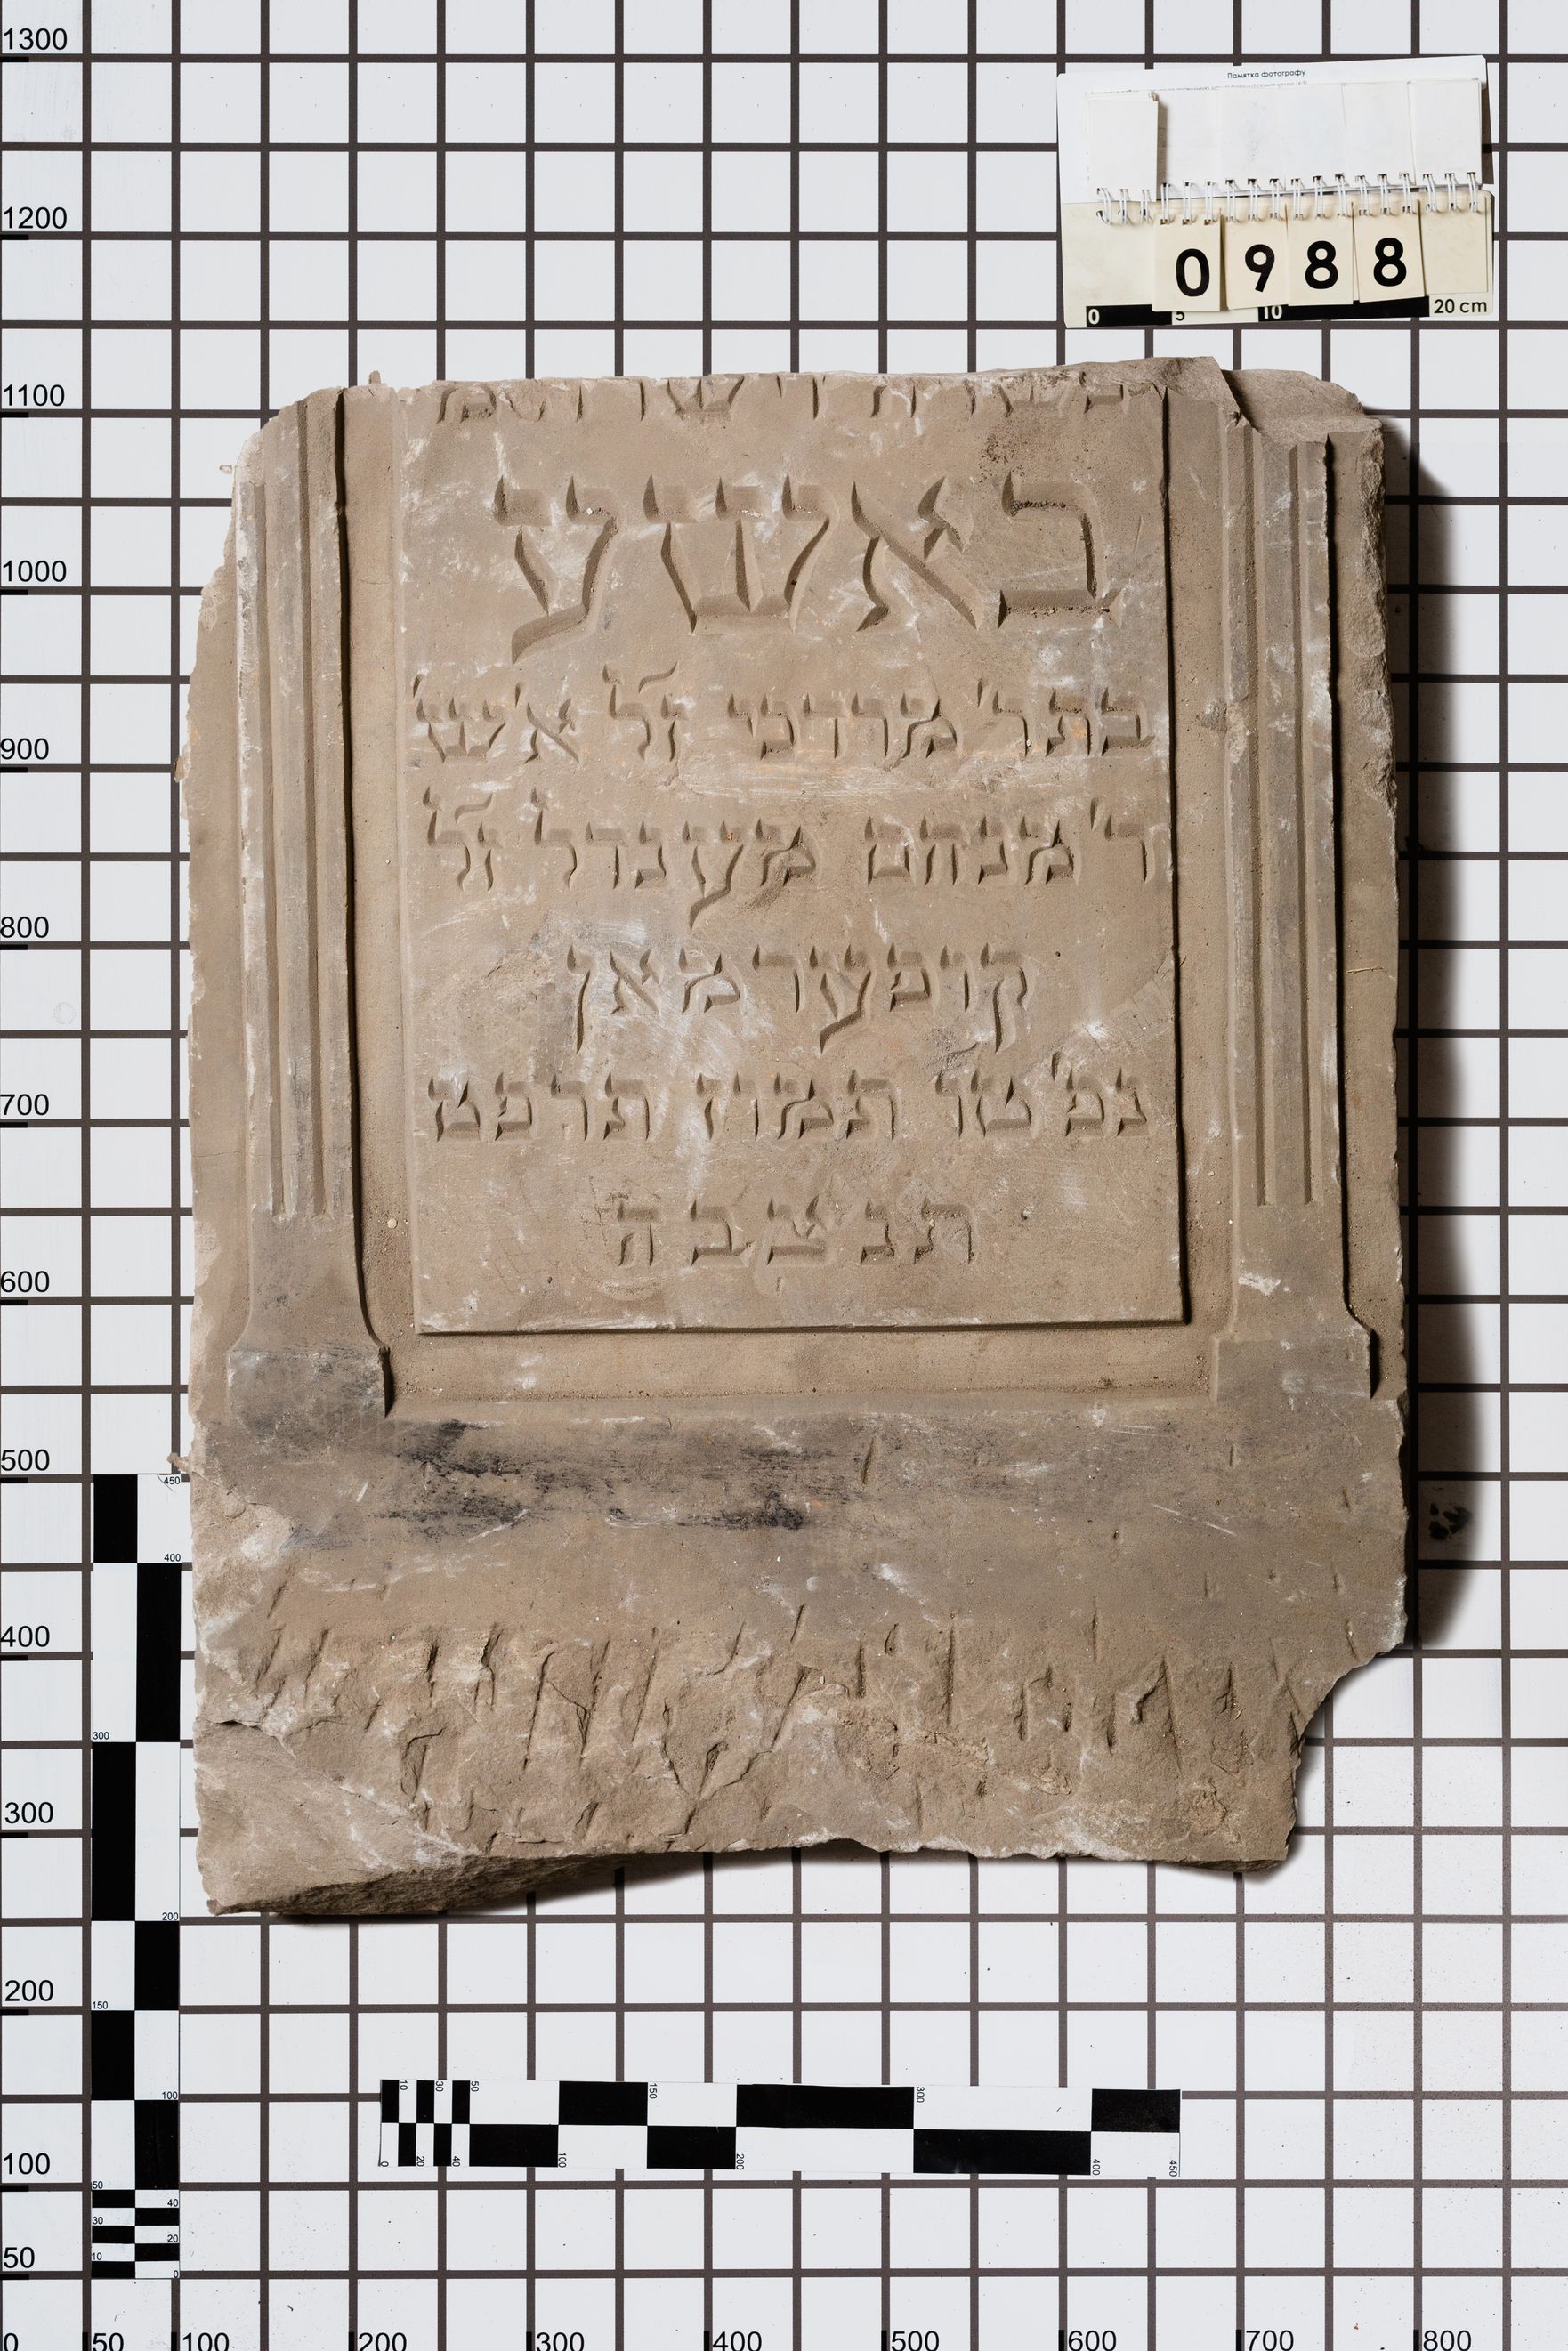 Памятка фотографу
0 9 8 8
0 5 10 20 cm
באשע
בת ר' מרדכי ז"ל אש'
ר' מנחם מענדל ז"ל
קופערמאן
נפ' טו תמוז תרפט
תנצבה
1300
1200
1100
1000
900
800
700
600
500
400
300
200
100
50
0 50 100 200 300 400 500 600 700 800
450
400
300
200
150
100
50
40
30
20
10
0
10 30 50 150 300
0 20 40 100 200 400 450